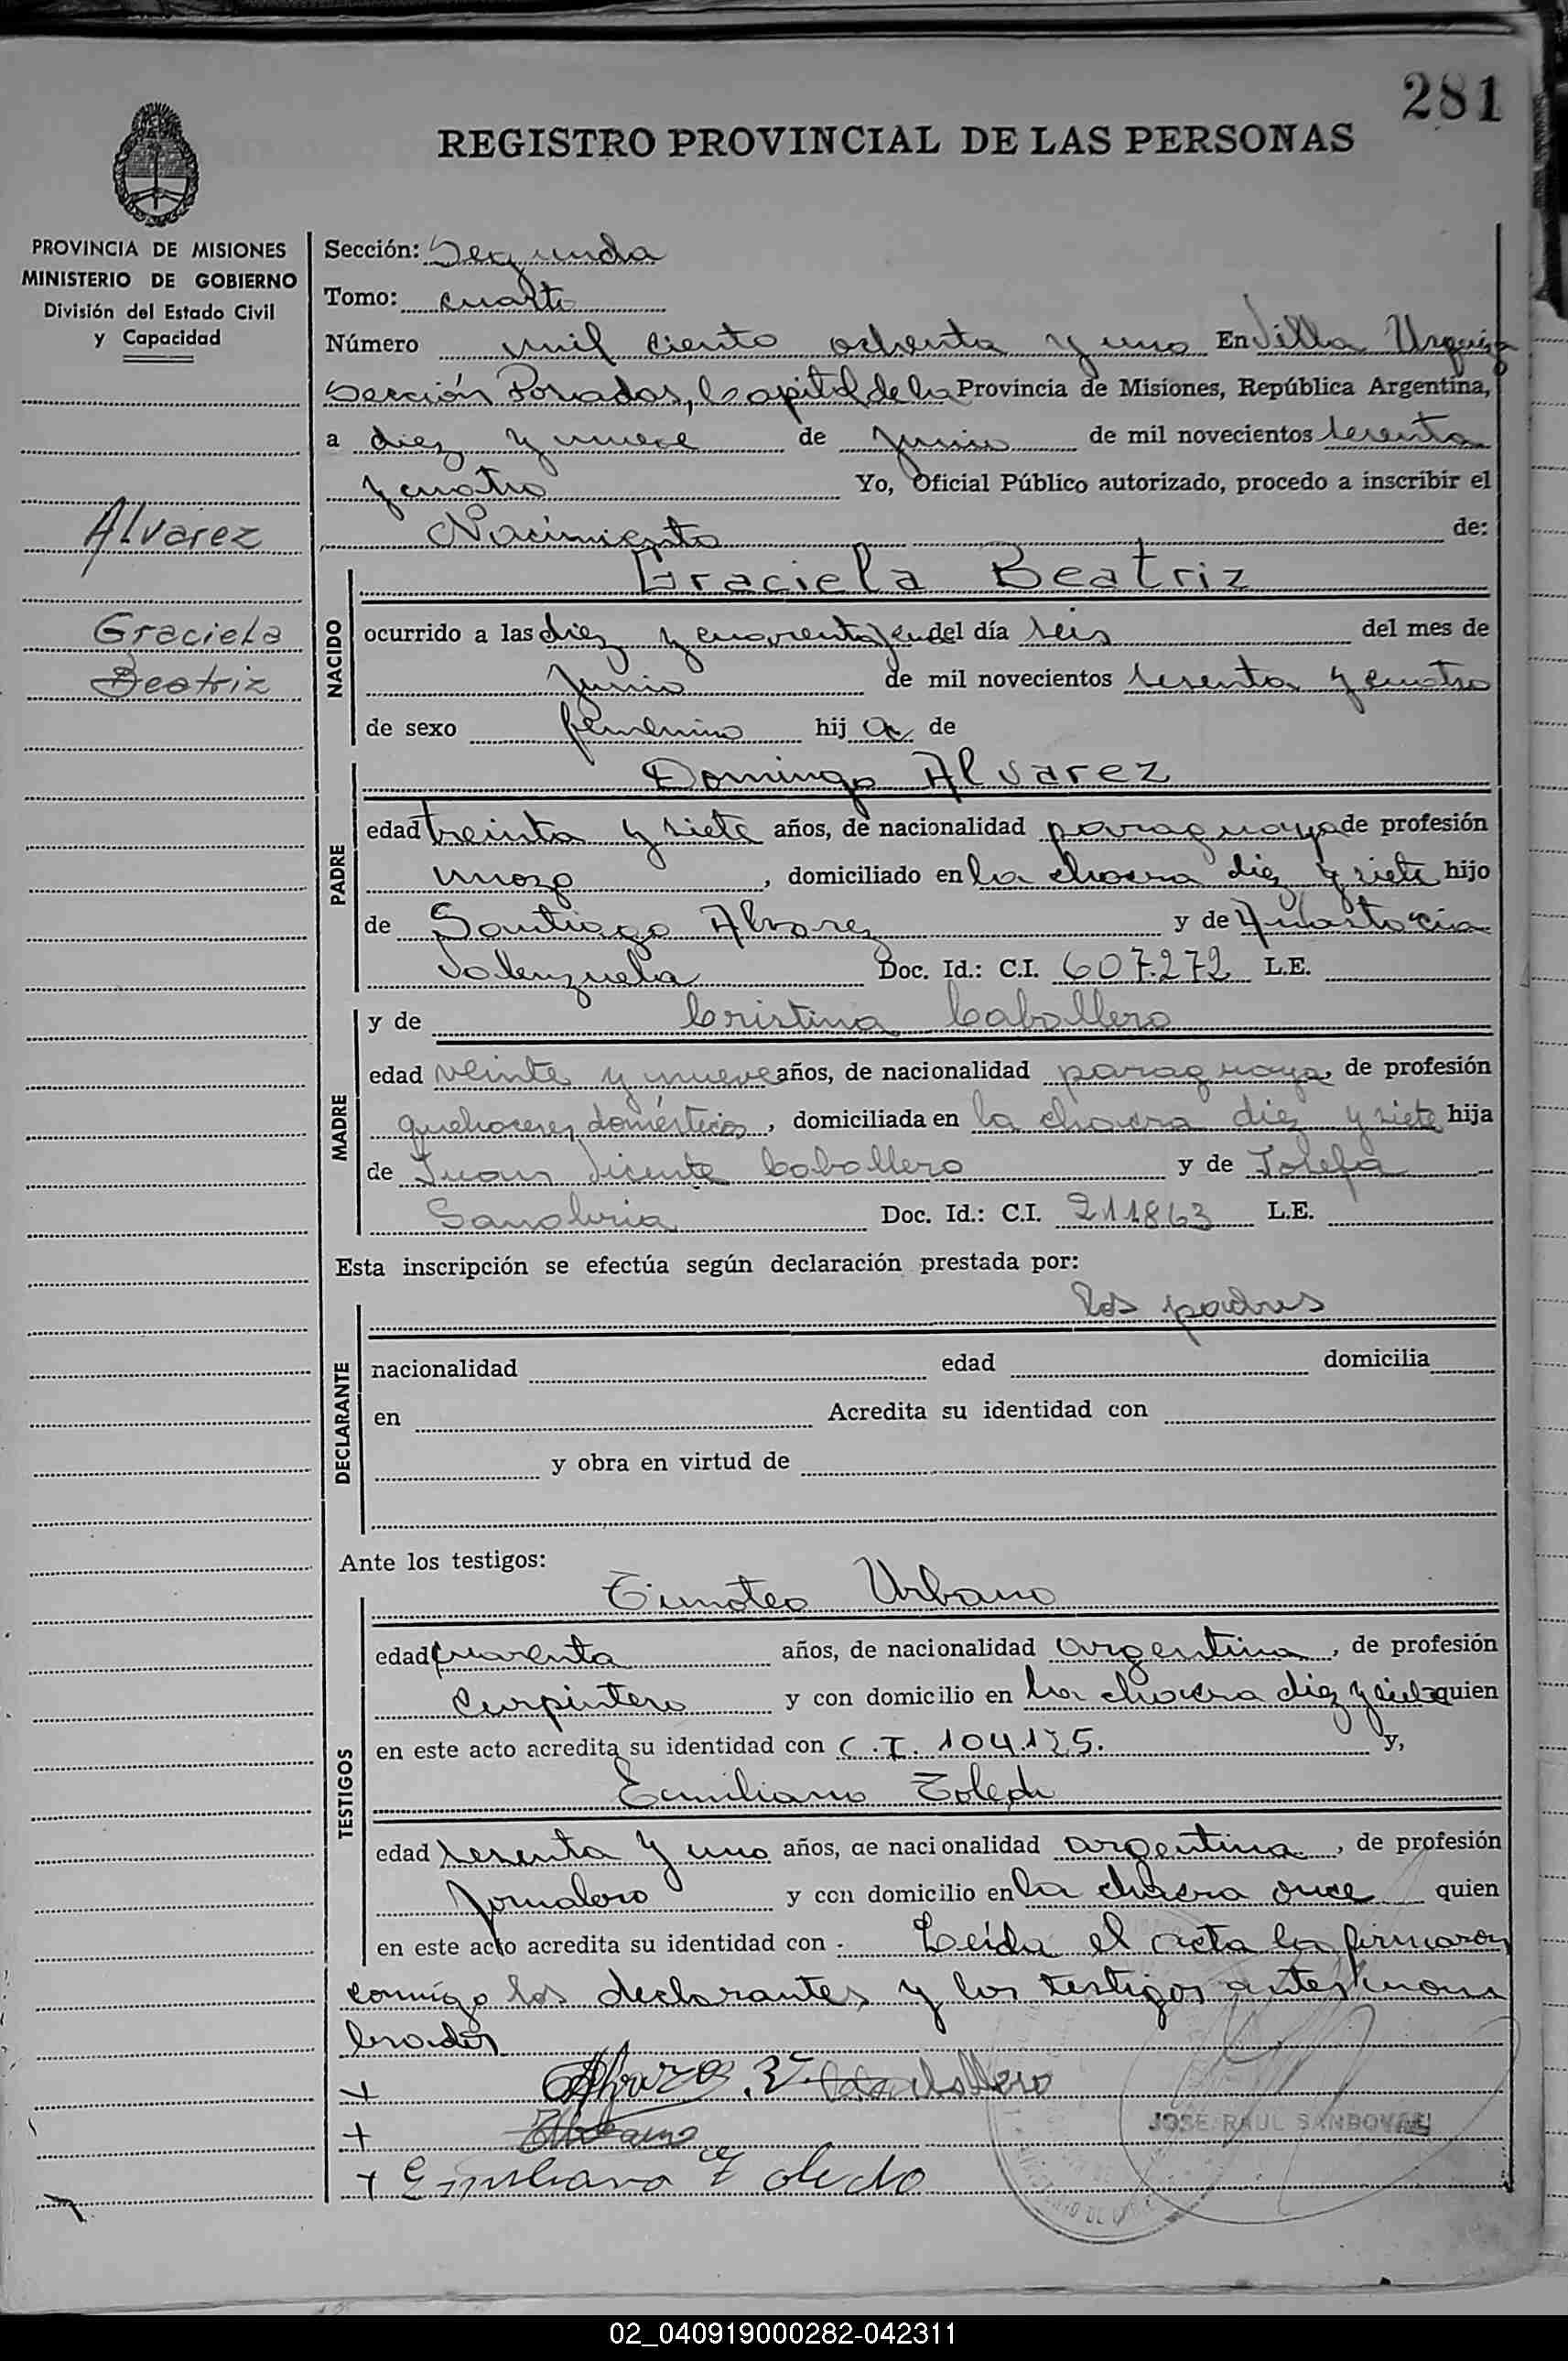 281
REGISTRO PROVINCIAL DE LAS PERSONAS
PROVINCIA DE MISIONES
MINISTERIO DE GOBIERNO
División del Estado Civil
y Capacidad
Alvarez
Graciela
Beatriz
Sección: Segunda
Tomo: cuarto
Número mil ciento ochenta y uno En Villa Urquiza
Sección Posadas, Capital de la Provincia de Misiones, República Argentina,
a diez y nueve de Junio de mil novecientos sesenta
y cuatro Yo, Oficial Público autorizado, procedo a inscribir el
Nacimiento de:
Graciela Beatriz
NACIDO
ocurrido a las diez y cuarenta del día seis del mes de
Junio de mil novecientos sesenta y cuatro
de sexo femenino hij a de
PADRE
Domingo Alvarez
edad treinta y siete años, de nacionalidad paraguaya de profesión
mozo, domiciliado en la chacra diez y siete hijo
de Santiago Alvarez y de
Valenzuela Doc. Id.: C.I. 607.272 L.E.
MADRE
y de Cristina Caballero
edad veinte y nueve años, de nacionalidad paraguaya, de profesión
quehaceres domésticos, domiciliada en la chacra diez y siete hija
de Juan Vicente Caballero y de Josefa
Sanabria Doc. Id.: C.I. 211863 L.E.
Esta inscripción se efectúa según declaración prestada por:
los padres
DECLARANTE
nacionalidad edad domicilia
en Acredita su identidad con
y obra en virtud de
Ante los testigos:
TESTIGOS
Timoteo Urbano
edad cuarenta años, de nacionalidad argentina, de profesión
Carpintero y con domicilio en la chacra diez y siete quien
en este acto acredita su identidad con C.I. 104.125. y,
Emiliano Toledo
edad sesenta y uno años, de nacionalidad argentina, de profesión
Jornalero y con domicilio en la chacra once quien
en este acto acredita su identidad con . Leída el acta la firmaron
conmigo los declarantes y los testigos antes nom
brados
+ Alvarez Caballero
+ Urbano
JOSE RAUL SANDOVAL
+ Emiliano Toledo
02_040919000282-042311